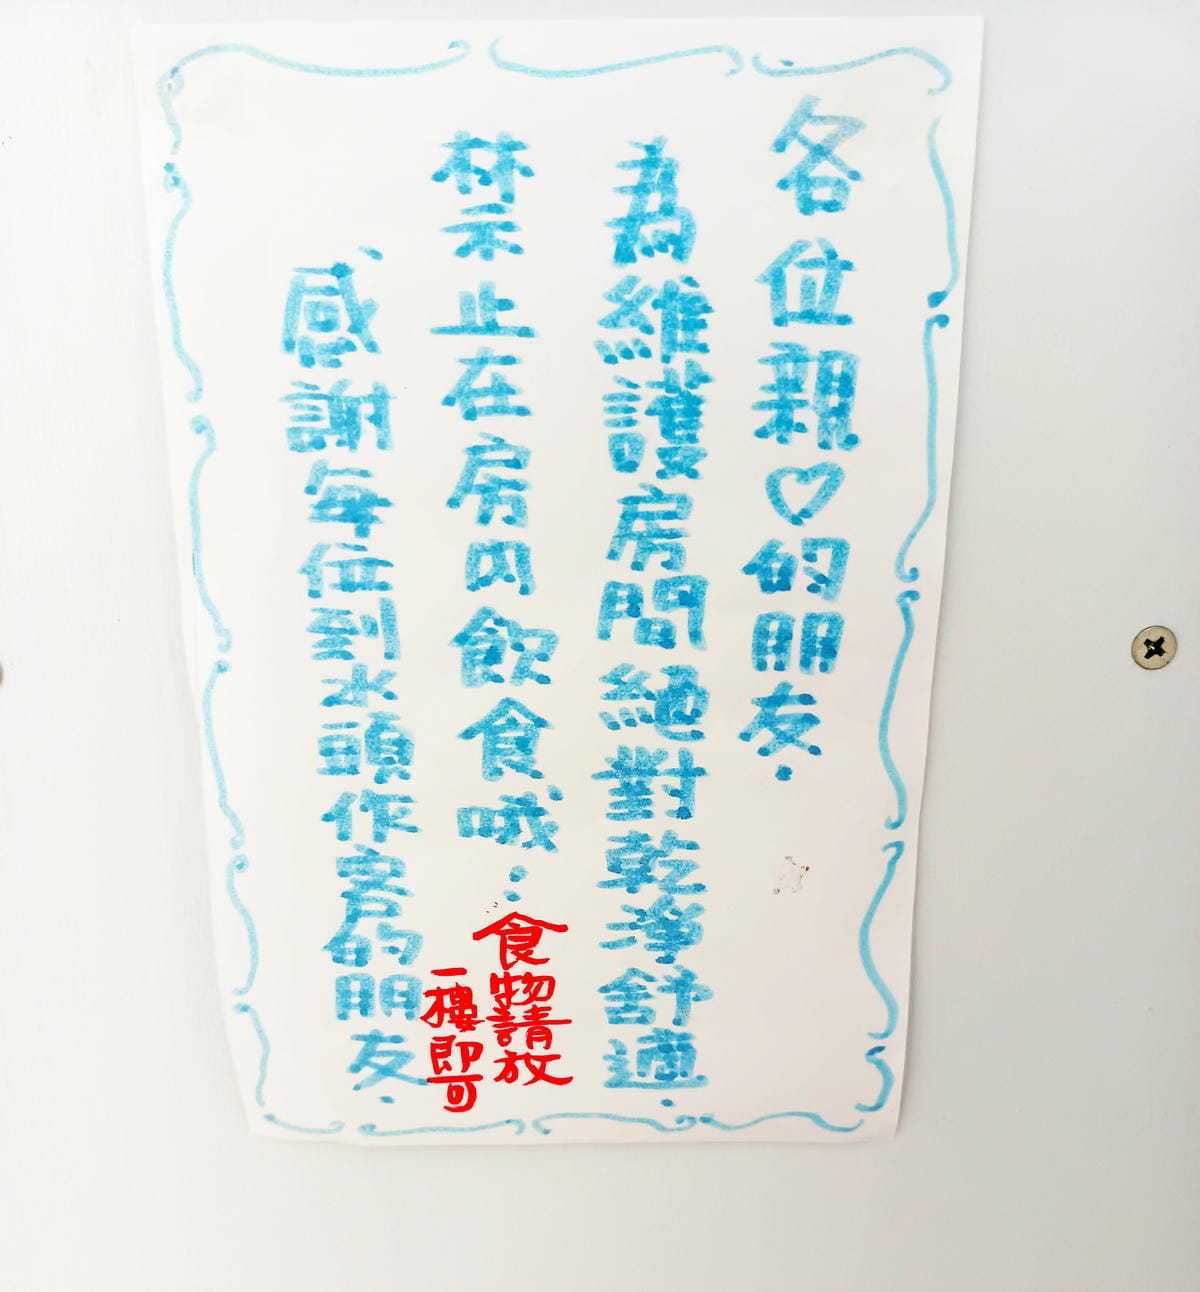 各位親♡的朋友.
為維護房間絕對乾淨舒適.
禁止在房內飲食哦...
食物請放
一樓即可
感謝每位到水頭作客的朋友.